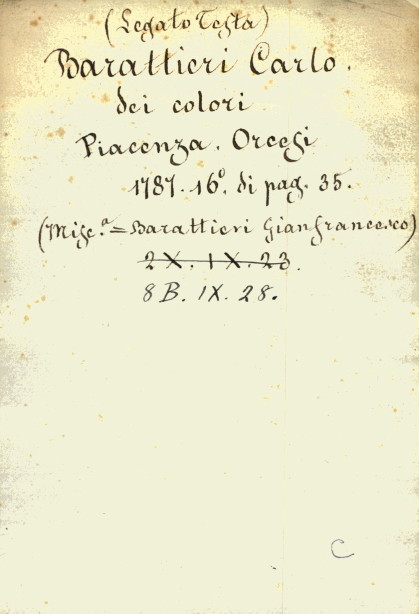 (Legato Testa)
Barattieri Carlo.
dei colori
Piacenza. Orcesi
1787. 16°. di pag. 35.
(Misc.ª = Barattieri Gianfrancesco)
2 X. IX. 23.
8 B. IX. 28.
C